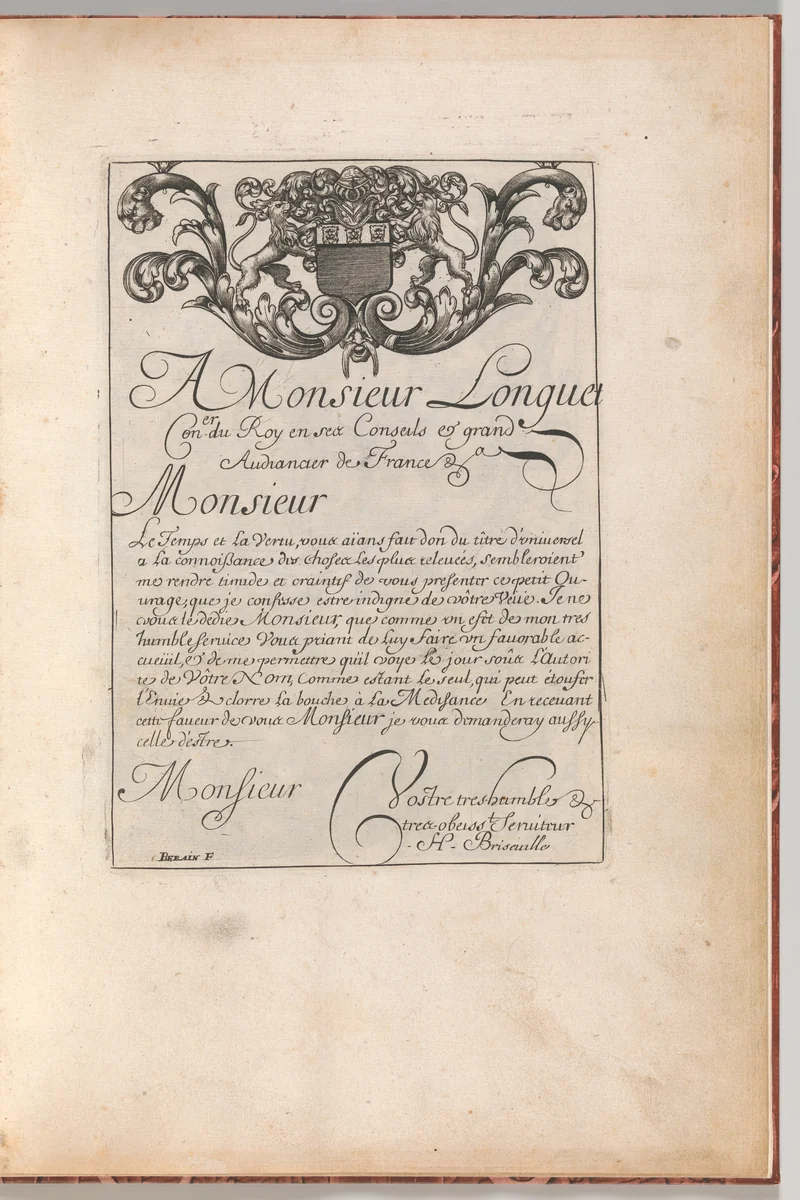 A Monsieur Longuet
Con.er du Roy en ses Conseils et grand
Audiancier de France &a
Monsieur
Le Temps et la Vertu, vous aïans fait don du tître d'universel
a la connoissance des choses les plus releueés, sembleroient
me rendre timide et craintif de vous presenter ce petit Ou-
urage, que je confesse estre indigne de vôtre Veüe. Je ne
vous le dedie Monsieur, que comme vn efét de mon tres
humble service Vous priant de luy faire vn fauorable ac-
cueüil, et de me permettre qu'il voye le jour soûs l'Autori
té de Vôtre Nom, Comme estant le seul, qui peut étoufer
l'Envie & clorre la bouche à la Medisance En recevant
cette faueur de vous Monsieur je vous demanderay aussy
celle d'estre.
Monsieur
Vostre tres-humble &
tres-obeisst Seruiteur
- H - Briseuille
BERAIN F